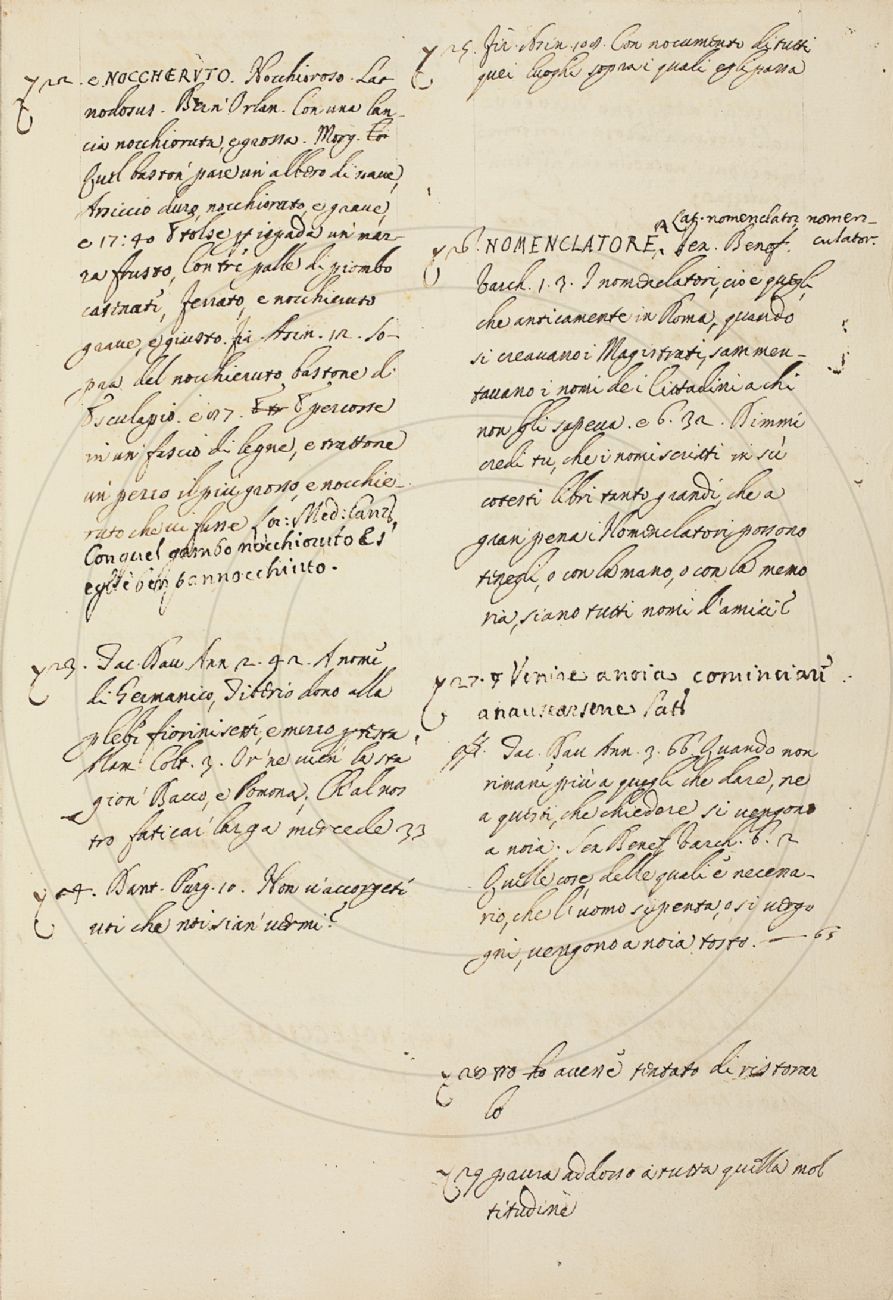 22. e NOCCHERVTO. Nocchioroso. Lat
nodosus. Bern' Orlan. Con una lan-
cia nocchioruta, e grossa. Morg.
Quel baston' pare un' albero di naue,
Arsiccio duro, nocchioruto, e graue,
e 17:40 E tolse p ispada un' maz-
za frusto, Con tre palle di piombo
Ferrato, e nocchieruto
graue, e giusto. fir Asin. 12. So-
pra del nocchieruto bastone di
Esculapio. e 87. E percosse
in un' fascio di legne, e trattone
un' pezzo il più grosso, e nocchie-
ruto che ui fusse Lor: Med: Canz
Con quel gambo nocchioruto Es'
egli è ben bannocchiuto.
23. Tac. Dau Ann 2. 42. A nome
di Germanico, Tiberio dono alla
plebe fiorini sette, e mezzo p testa
Alam. Colt. 3. Or' ne uien' la sta
gion' Bacco, e Pomona, Ch' al nos
tro faticar larga mercede 33
24. Dant. Purg. 10. Non u' accorgete
uoi che noi sian' uermi?
25. Fir. Asin. 108. Con nocumento di tutti
quei luoghi sopra i quali egli passa
Lat. nomenclator nomen-
culator.
26. NOMENCLATORE, Sen. Benef.
Varch. 1. 3. I nomenclatori, cioè quegli,
che anticamente in Roma, quando
si creauano i Magistrati, rammen-
tauano i nomi de i Cittadini a chi
non gli sapeua. e 6. 32. Dimmi
credi tu, che i nomi scritti in sù
cotesti libri tanto grandi, che a
gran' pena i Nomenclatori possono
tenegli, o con la mano, o con la memo
ria, siano tutti nomi d'amici?
27. Venire a noia cominciare
a nauscarsene Lat
Tac. Dau Ann. 3. 66 Quando non
rimane più a quegli che dare, ne
a questi, che chiedere si vengono
a noia. Sen Benef Varch. 6. 2
Quelle cose, delle quali è necessa-
rio, che l'uomo si penta, o si uergo
gni, vengono a noia tosto. — 65
28 ho auesse tentato di ristorar
lo
29 paura addosso a tutta quella mol
titudine